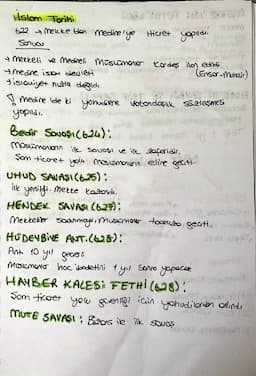 İslam Tarihi
622 → Mekke'den Medine'ye Hicret yapıldı.
Sonucu
→ Mekkeli ve Medineli Müslümanlar Kardeş ilan edildi
→ Medine İslam devleti (Ensar-Muhacir)
→ İslamiyet hızla değildi
Medine'de ki yahudilerle Vatandaşlık sözleşmesi
yapıldı.
Bedir Savaşı (624):
Müslümanların ilk savaşı ve ilk zaferidir.
Şam ticaret yolu Müslümanların eline geçti.
UHUD SAVAŞI (625):
İlk yenilgi. Mekke kazandı.
HENDEK SAVAŞI (627):
Mekkeliler savunmaya, Müslümanlar taarruza geçti.
HUDEYBİYE ANT. (628):
Ant. 10 yıl geçerli
Müslümanlar hac ibadetini 1 yıl sonra yapacak
HAYBER KALESİ FETHİ (628):
Şam ticaret yolu güvenliği için yahudilerden alındı
MUTE SAVAŞI: Bizans ile ilk savaş